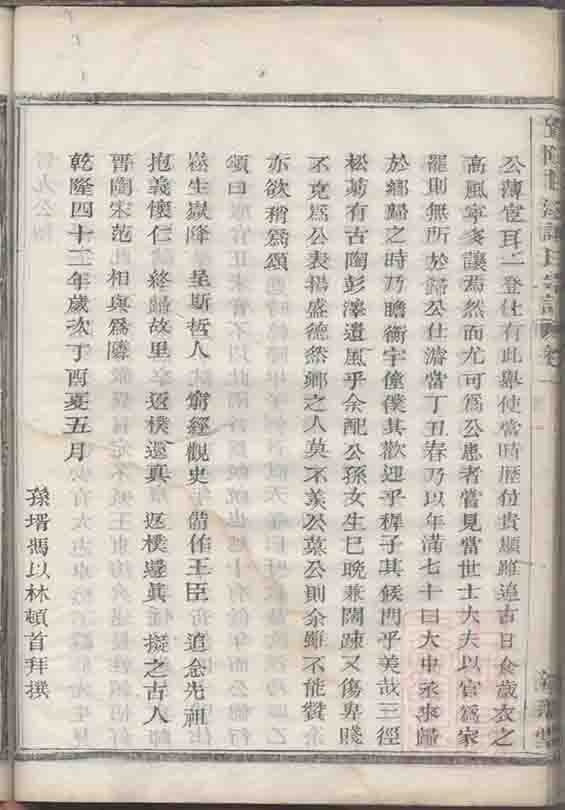 公薄宦耳一登仕有此舉使當時歷位貴顯雖追古日食歲衣之
高風寧多讓焉然而尤可為公患者嘗見當世士大夫以官為家
罷則無所於歸公仕游當丁丑春乃以年滿七十日大中丞來歸
於鄉歸之時乃瞻衡宇僮僕其歡迎乎稺子其候門乎美哉三徑
松菊有古陶彭澤遺風乎余配公孫女生已晚兼闊踈又傷卑賤
不克為公表揚盛德然鄉之人莫不羡公慕公則余雖不能贊
亦欲稍為頌
頌曰
崧生嶽降 是斯哲人 窮經觀史 備作王臣 追念先祖
抱義懷仁 終楍故里 返樸還真 返樸還真 擬之古人
晋陶宋范 此相與為隣
乾隆四十二年歲次丁酉夏五月
孫壻馮以林頓首拜撰